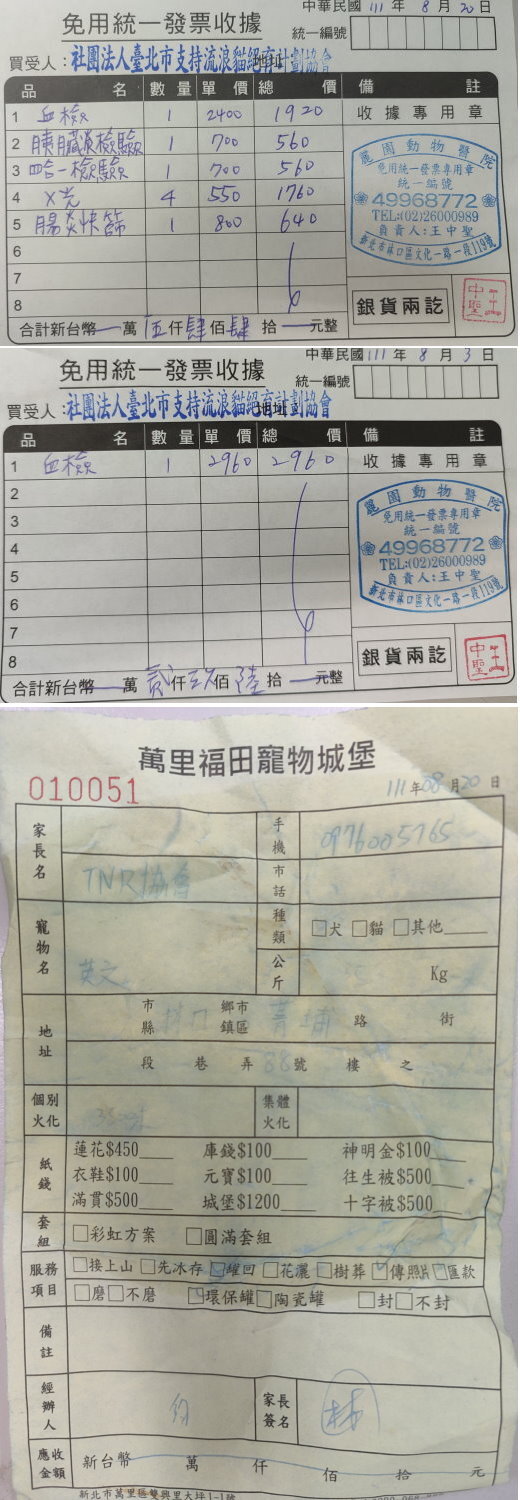 中華民國 111 年 8 月 20 日
免用統一發票收據
統一編號
買受人：社團法人臺北市支持流浪貓絕育計劃協會
地址
品名 數量 單價 總價 備註
1 血檢 1 2400 1920
收據專用章
2 胰臟炎檢驗 1 700 560
3 四合一檢驗 1 700 560
4 X光 4 550 1760
5 腸炎快篩 1 800 640
6
7
8
麗園動物醫院
免用統一發票專用章
統一編號
49968772
TEL:(02)26000989
負責人:王中聖
新北市林口區文化一路一段119號
銀貨兩訖
王中聖
合計新台幣 萬 伍仟肆佰肆拾 元整
中華民國 111 年 8 月 3 日
免用統一發票收據
統一編號
買受人：社團法人臺北市支持流浪貓絕育計劃協會
地址
品名 數量 單價 總價 備註
1 血檢 1 2960 2960
收據專用章
2
3
4
5
6
7
8
麗園動物醫院
免用統一發票專用章
統一編號
49968772
TEL:(02)26000989
負責人:王中聖
新北市林口區文化一路一段119號
銀貨兩訖
王中聖
合計新台幣 萬 貳仟玖佰陸拾 元整
萬里福田寵物城堡
010051
111年08月20日
家長名 TNR協會
手機 0976005765
市話
寵物名 英文
種類 犬 貓 其他
公斤 Kg
地址 市縣 林口 鄉市鎮區 菁埔 路 街
段 巷 弄 88號 樓 之
個別火化
集體火化
紙錢
蓮花$450 庫錢$100 神明金$100
衣鞋$100 元寶$100 往生被$500
滿貫$500 城堡$1200 十字被$500
套組 彩虹方案 圓滿套組
服務項目 接上山 先冰存 罐回 花灑 樹葬 傳照片 匯款
磨 不磨 環保罐 陶瓷罐 封 不封
備註
經辦人
家長簽名 林
應收金額 新台幣 萬 仟 佰 拾 元
新北市萬里區雙興里大坪1-1號